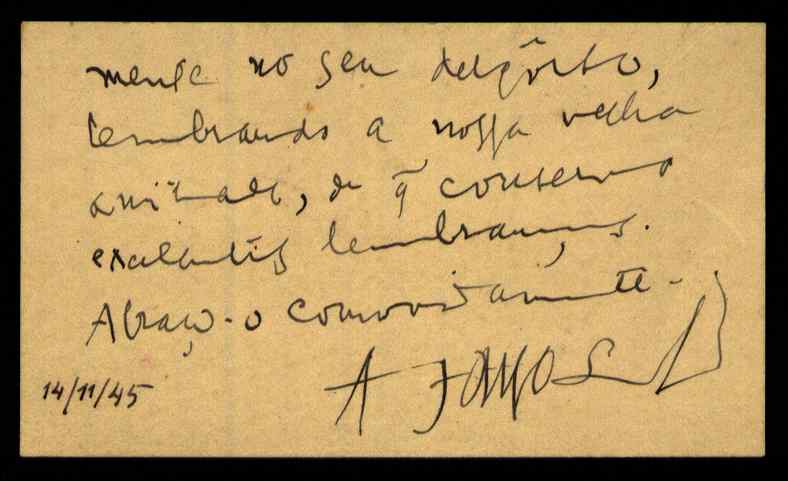 mente no seu desgôsto,
lembrando a nossa velha
amizade, de q̃ conservo
excelentes lembranças.
Abraço-o comovidamente.
14/11/45 A